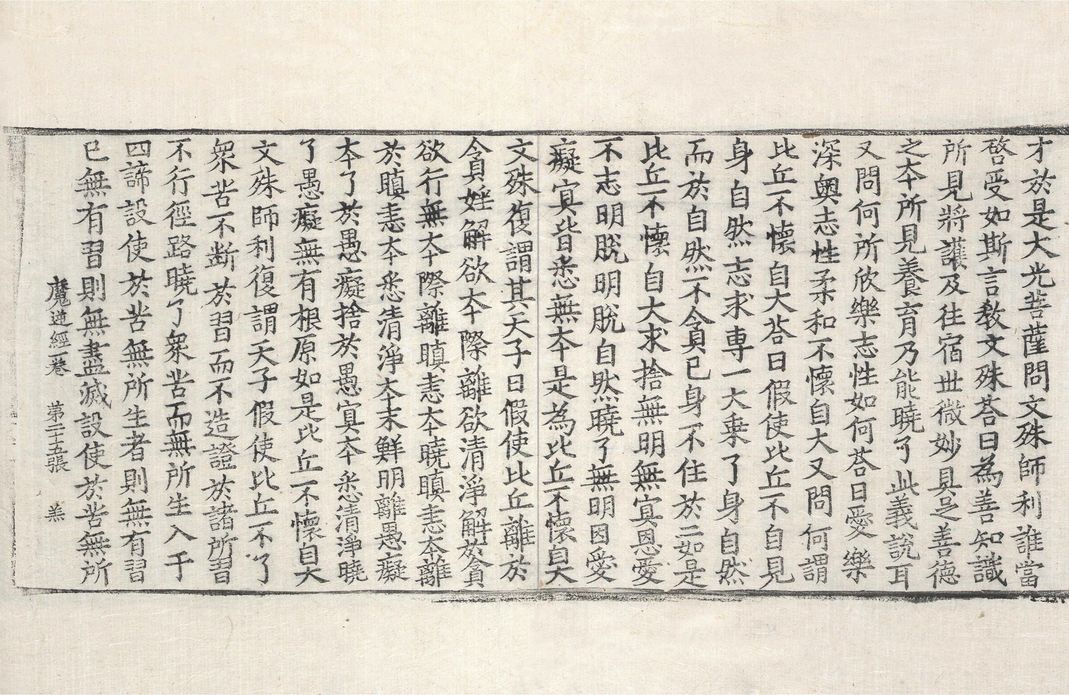 才於是大光菩薩問文殊師利誰當
啓受如斯言教文殊荅曰為善知識
所見將護及往宿世微妙具足善德
之夲所見養育乃能曉了此義說耳
又問何所欣樂志性如何荅曰愛樂
深奧志性柔和不懷自大又問何謂
比丘不懷自大荅曰假使比丘不自見
身自然志求專一大乗了身自然
而於自然不貪己身不住於二如是
比丘不懷自大求捨無明無冥恩愛
不志明脫明脫自然曉了無明因愛
癡冥皆悉無夲是為比丘不懷自大
文殊復謂其天子曰假使比丘離於
貪婬解欲夲際離欲清淨解於貪
欲行無夲際離瞋恚夲曉瞋恚夲離
於瞋恚夲悉清淨夲末鮮明離愚癡
夲了於愚癡捨於愚冥夲悉清淨曉
了愚癡無有根原如是比丘不懷自大
文殊師利復謂天子假使比丘不了
衆苦不斷於習而不造證於諸所習
不行徑路曉了衆苦而無所生入于
四諦設使於苦無所生者則無有習
已無有習則無盡滅設使於苦無所
魔逆經一卷　第二十五張　羔